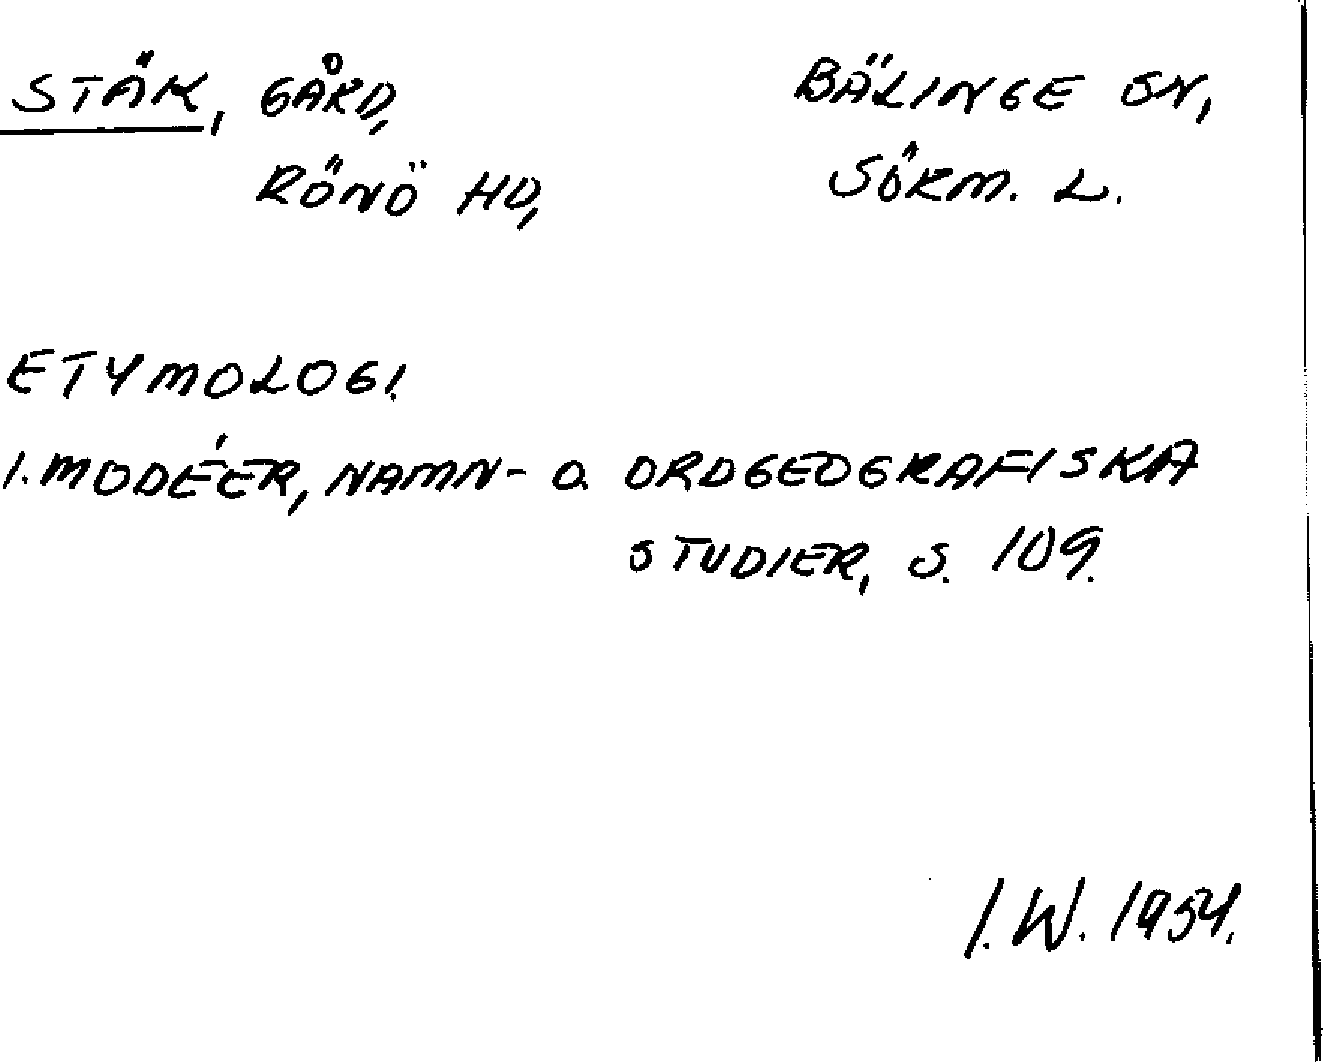 STÄK, GÅRD, BÄLINGE SN,
RÖNÖ HD, SÖRM. L.
ETYMOLOGI.
I. MODÉER, NAMN- O. ORDGEOGRAFISKA
STUDIER, S. 109.
I. W. 1954.